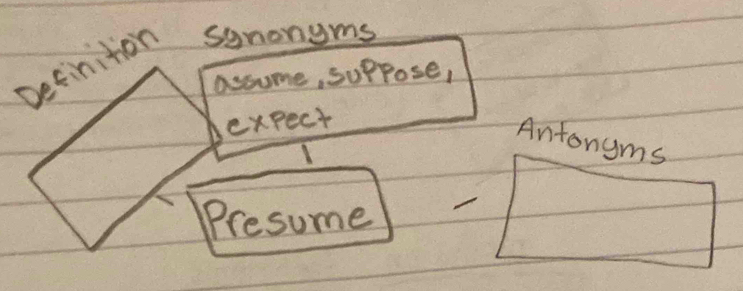 Definition
Synonyms
assume, suppose,
expect
Antonyms
Presume